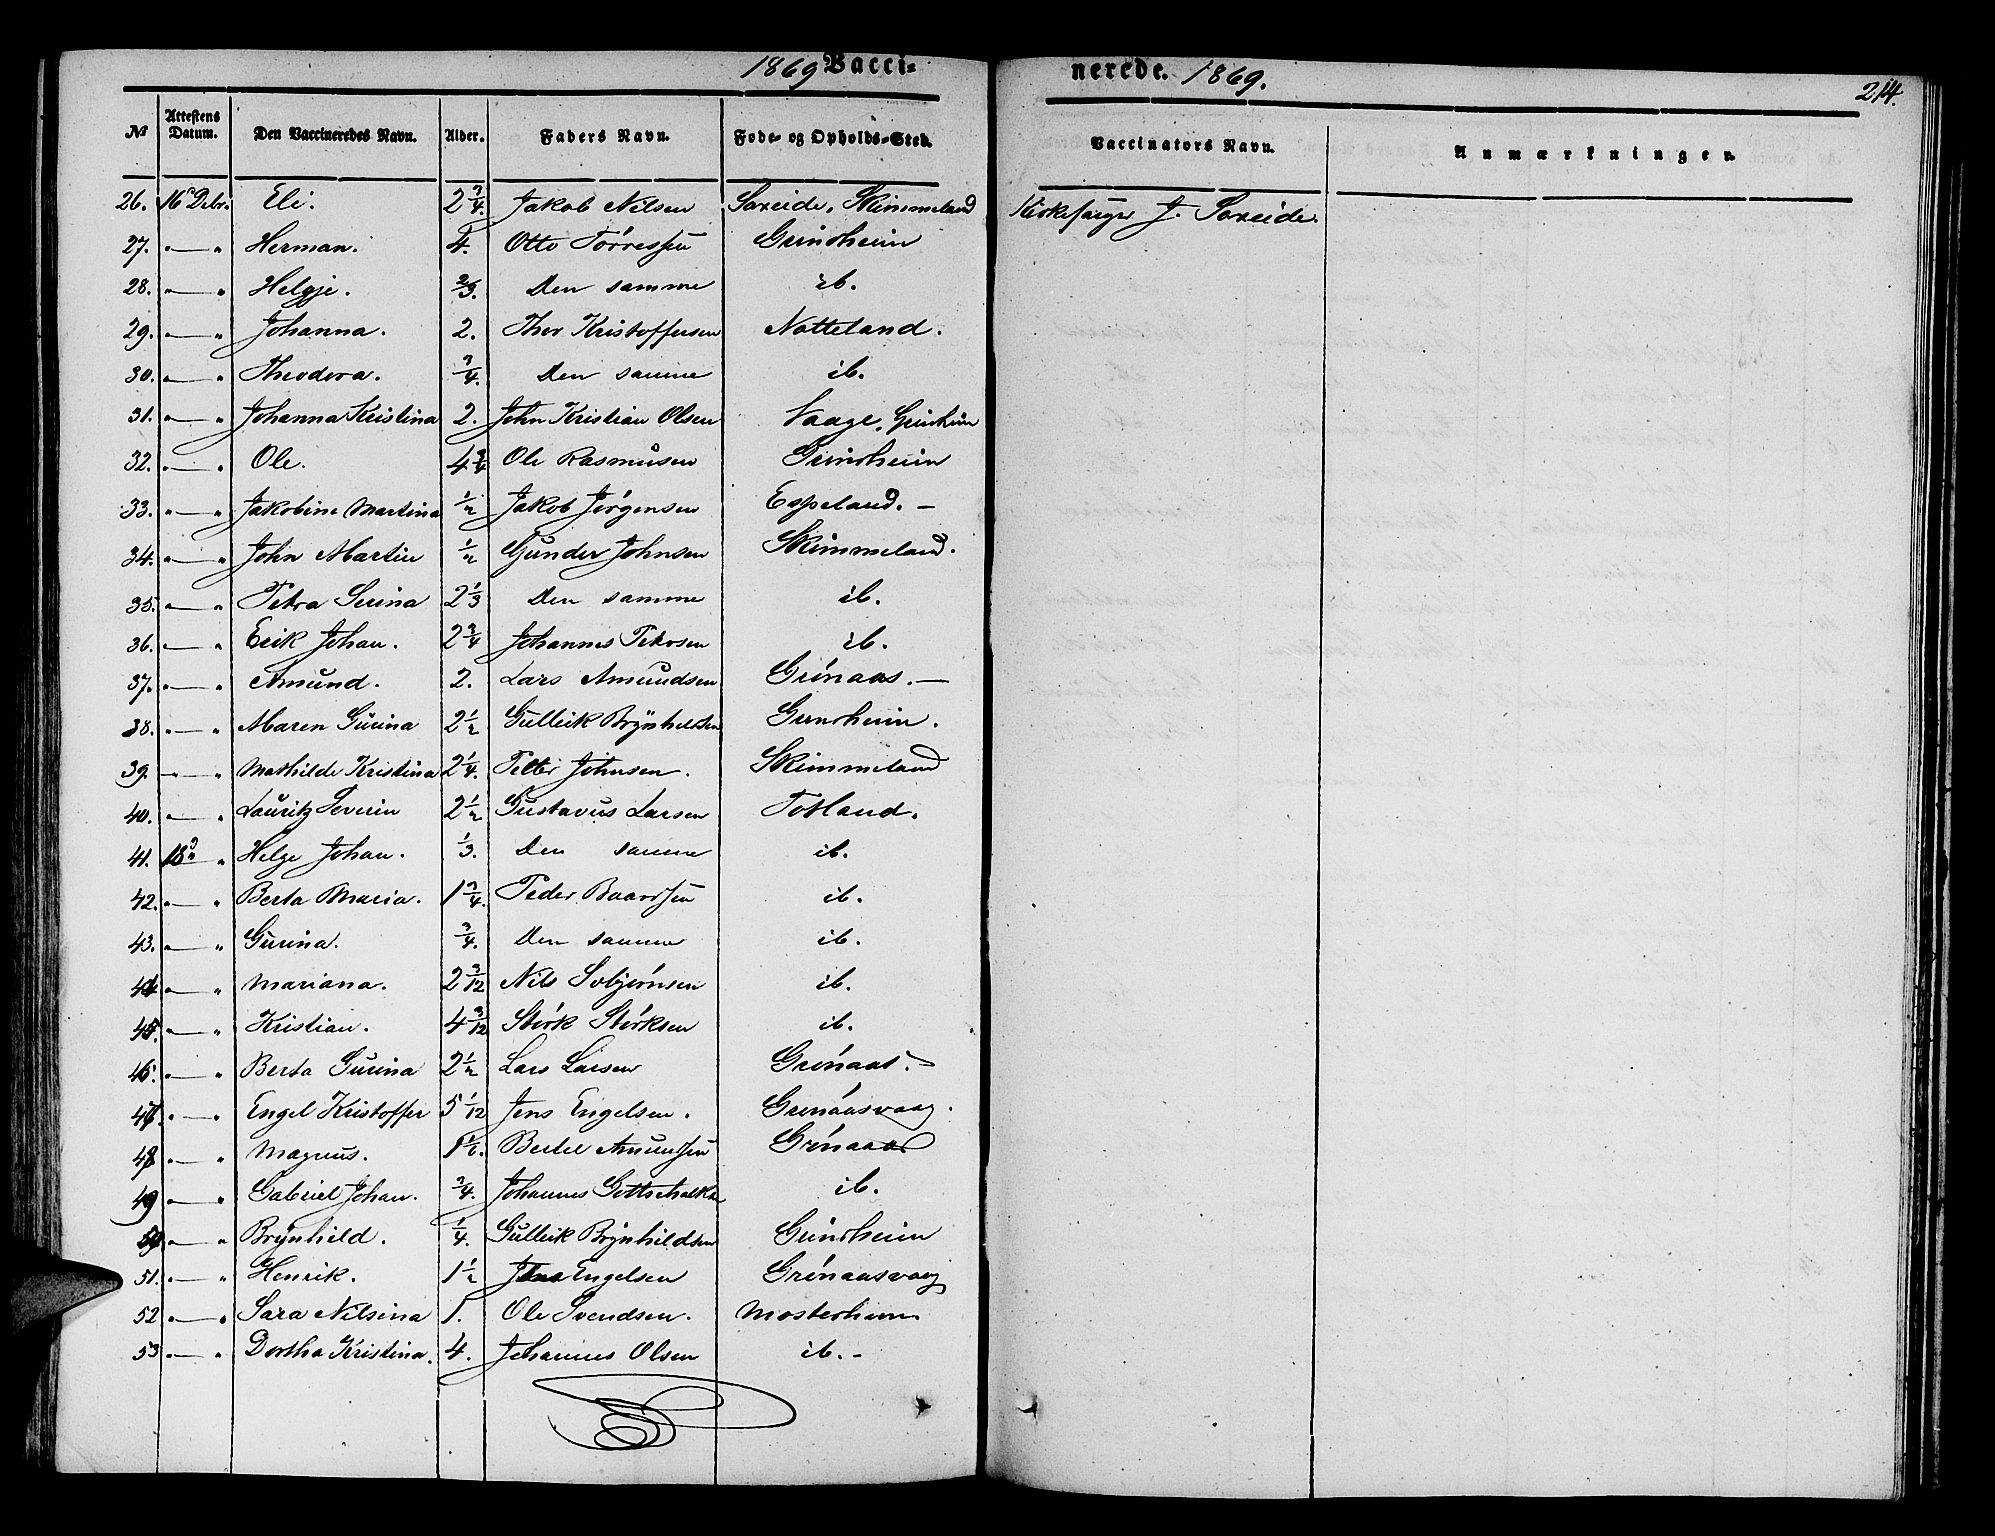 1869 Vacci- nerede. 1869. 214.
№ Attestens Datum. Den Vaccineredes Navn. Alder. Faders Navn. Føde- og Opholds-Sted. Vaccinators Navn. Anmærkninger.
26. 16 Debr. Eli. 2 3/4. Jakob Nilsen Søreide, Skimmeland Kirkesanger J. Søreide.
27. " — " Herman. 4. Otto Tørressen Grindheim
28. " — " Helgje. 2/3. Den samme ib.
29. " — " Johanna. 2. Thor Kristoffersen Notteland.
30. " — " Theodora. 3/4. Den samme ib.
31. " — " Johanna Kristina 2. John Kristian Olsen Vaage, Grindheim
32. " — " Ole. 4 3/4 Ole Rasmusen Grindheim
33. " — " Jakobine Martina 1/2 Jakob Jørgensen Espeland. —
34. " — " John Martin 1/2 Gunder Johnsen Skimmeland.
35. " — " Petra Serina 2 1/3 Den samme ib.
36. " — " Erik Johan. 2 3/4 Johannes ib.
37. " — " Amund. 2. Lars Amundsen Grönaas. —
38. " — " Maren Gurina 2 1/2 Gulleik Brynhildsen Grindheim.
39. " — " Mathilde Kristina 2 1/4. Petter Johnsen. Skimmeland
40. " — " Lauritz Severin 2 1/2 Gustavus Larsen Totland.
41. 18 " Helge Johan. 1/3. Den samme ib.
42. " — " Berta Maria. 1 3/4. Peder Baardsen ib.
43. " — " Gurina. 3/4. Den samme ib.
44. " — " Mariana. 2 3/12 Nils Asbjørnsen ib.
45. " — " Kristian. 4 3/12 Størk Størksen ib.
46. " — " Berta Gurina 2 1/2 Lars Larsen Grónaas. —
47. " — " Engel Kristoffer 5 1/12 Jens Engelsen. Grónaasvaag.
48. " — " Magnus. Bertel Amundsen Grónaas
49. " — " Gabriel Johan. 3/4. Johannes Gottschalks Ib.
50. " — " Brynhild. 1/4. Gulleik Brynhildsen Grindheim
51. " — " Henrik. 1 1/2 Jens Engelsen Grónaasvaag
52 " — " Sara Nilsina 1. Ole Svendsen. Mosterhavn
53 " — " Dortha Kristina. 4. Johannes Olsen ib. -